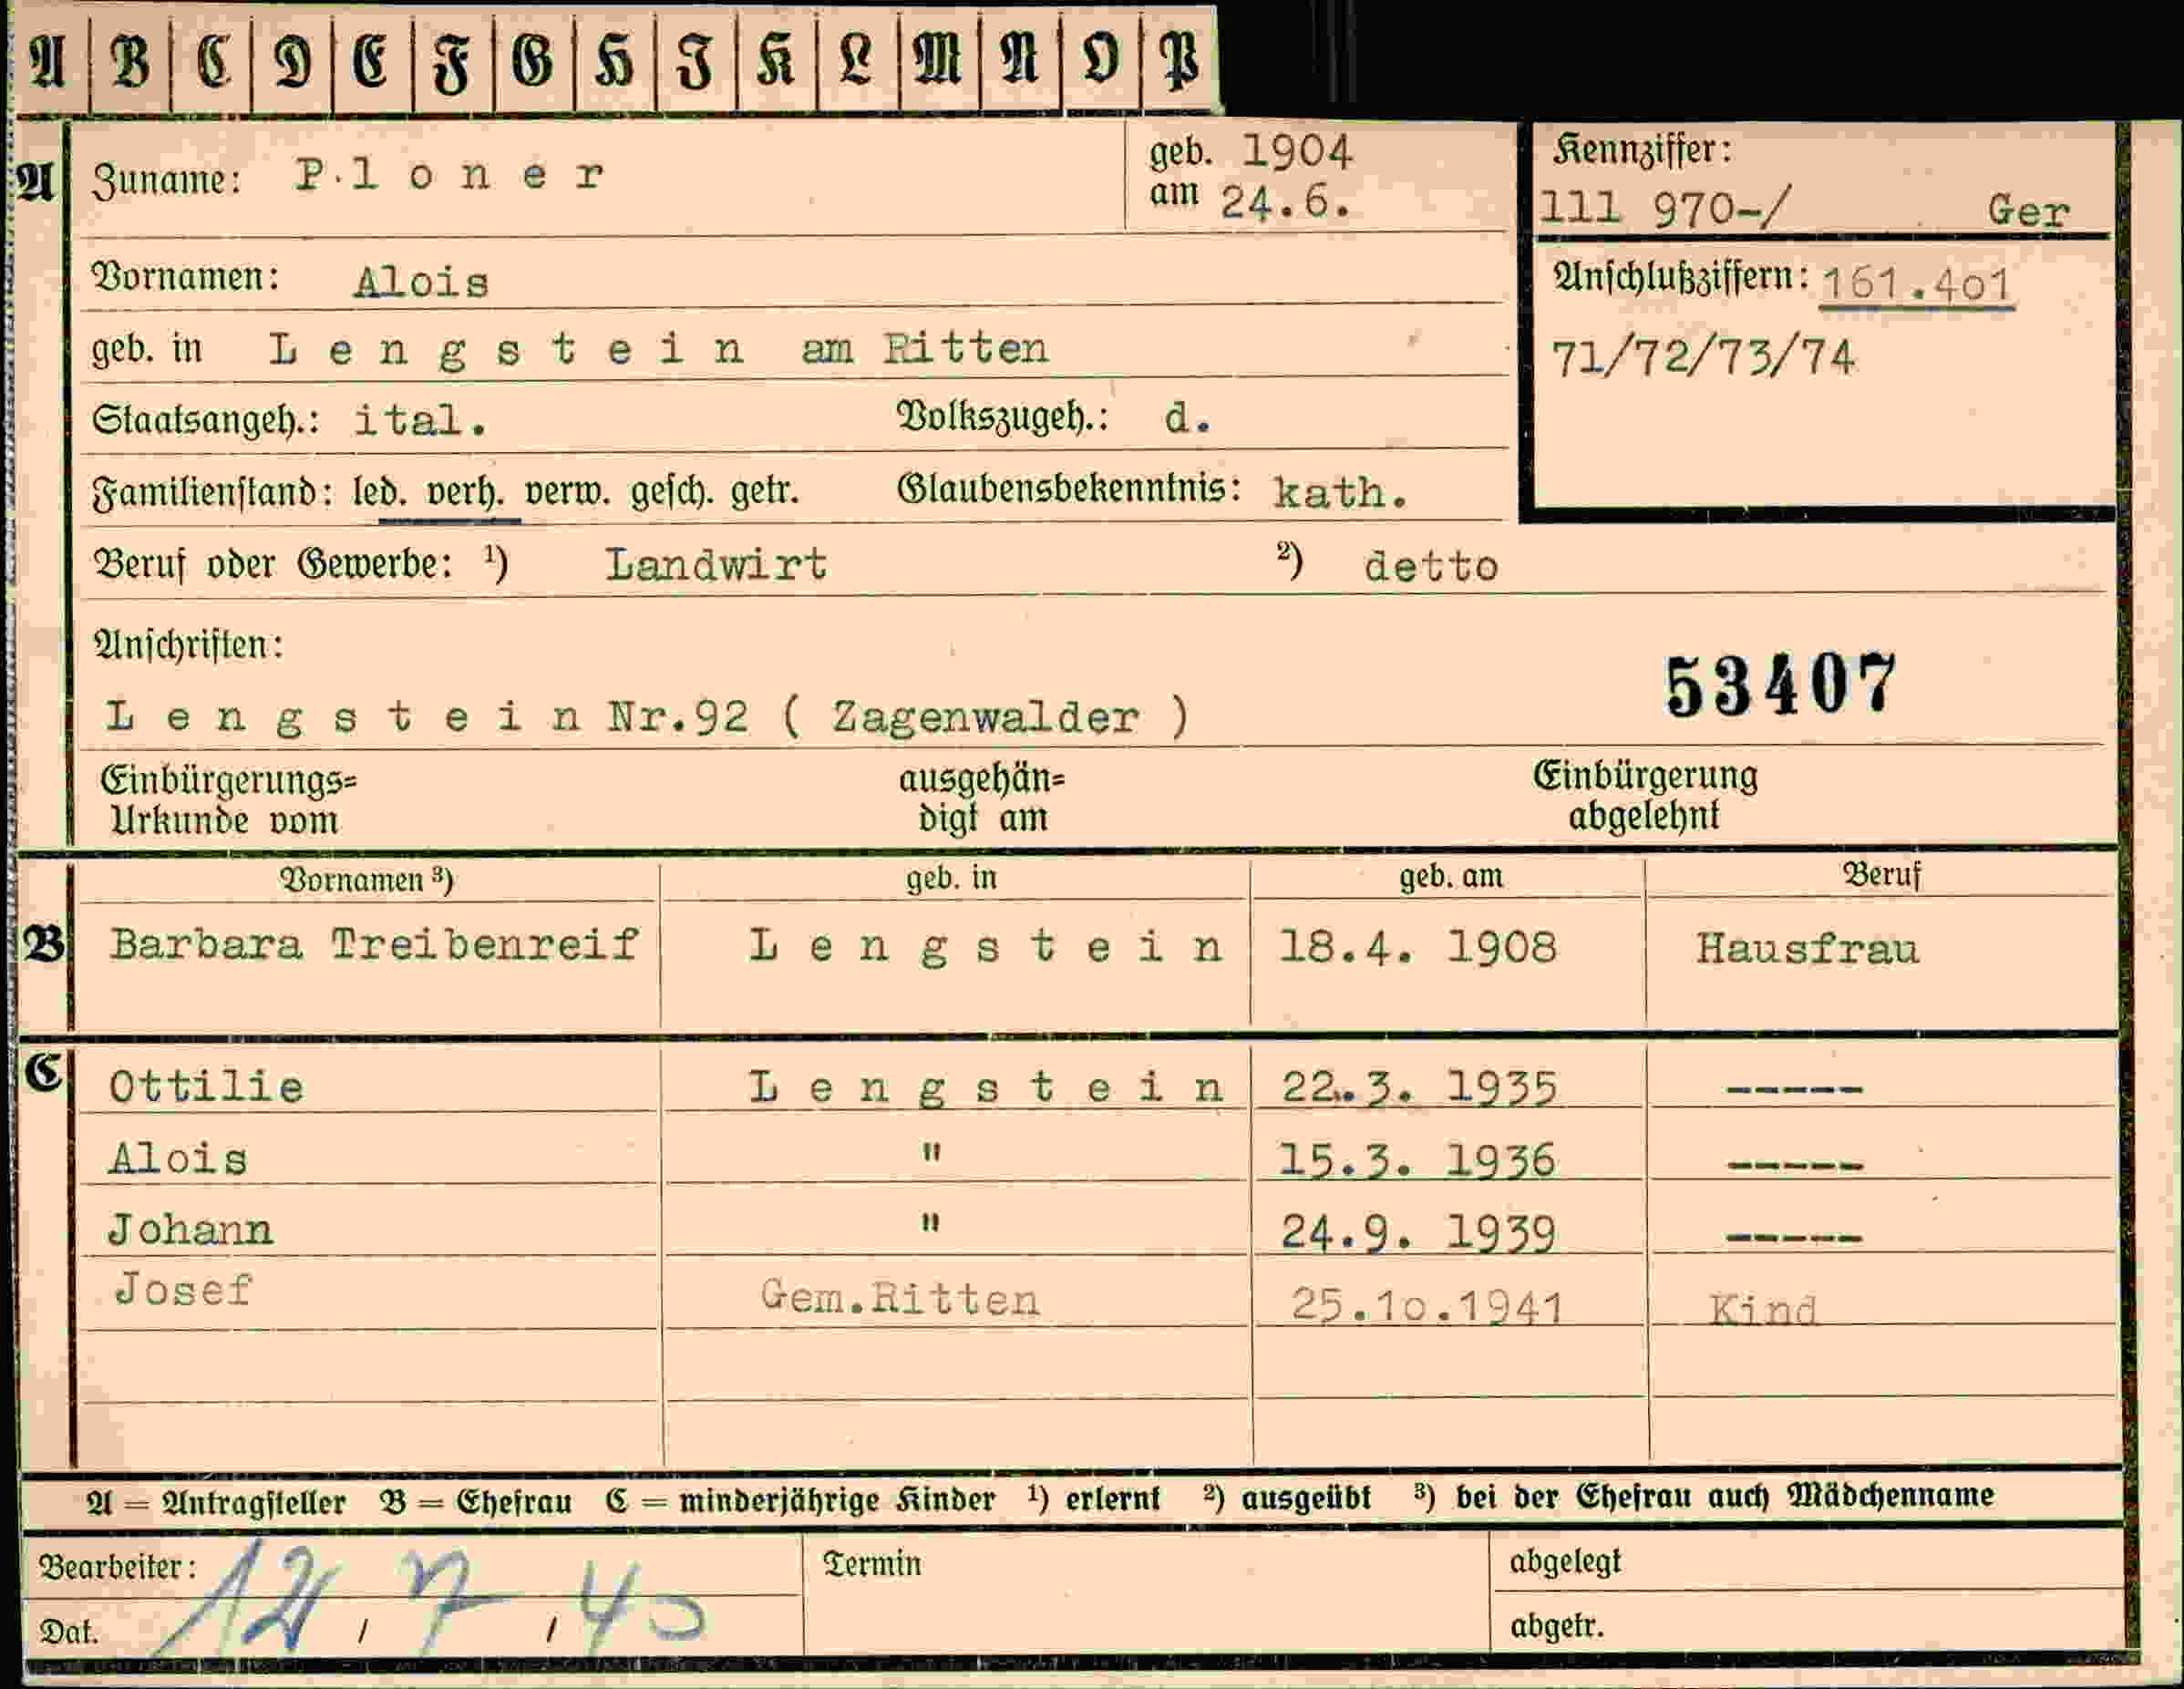 A B C D E F G H I K L M N O P
A Zuname: P.l o n e r geb. 1904 am 24.6. Kennziffer:
111 970-/ Ger
Vornamen: Alois Anschlußziffern: 161.4o1
geb. in L e n g s t e i n am Ritten 71/72/73/74
Staatsangeh.: ital. Volkszugeh.: d.
Familienstand: led. verh. verw. gesch. getr. Glaubensbekenntnis: kath.
Beruf oder Gewerbe: ¹) Landwirt ²) detto
Anschriften:
53407
L e n g s t e i n Nr.92 ( Zagenwalder )
Einbürgerungs= ausgehän= Einbürgerung
Urkunde vom digt am abgelehnt
Vornamen ³) geb. in geb. am Beruf
B Barbara Treibenreif L e n g s t e i n 18.4. 1908 Hausfrau
C Ottilie L e n g s t e i n 22.3. 1935 -----
Alois " 15.3. 1936 -----
Johann " 24.9. 1939 -----
Josef Gem.Ritten 25.1o.1941 Kind
A = Antragsteller B = Ehefrau C = minderjährige Kinder ¹) erlernt ²) ausgeübt ³) bei der Ehefrau auch Mädchenname
Bearbeiter: Termin abgelegt
Dat. / 7 / 40 abgetr.